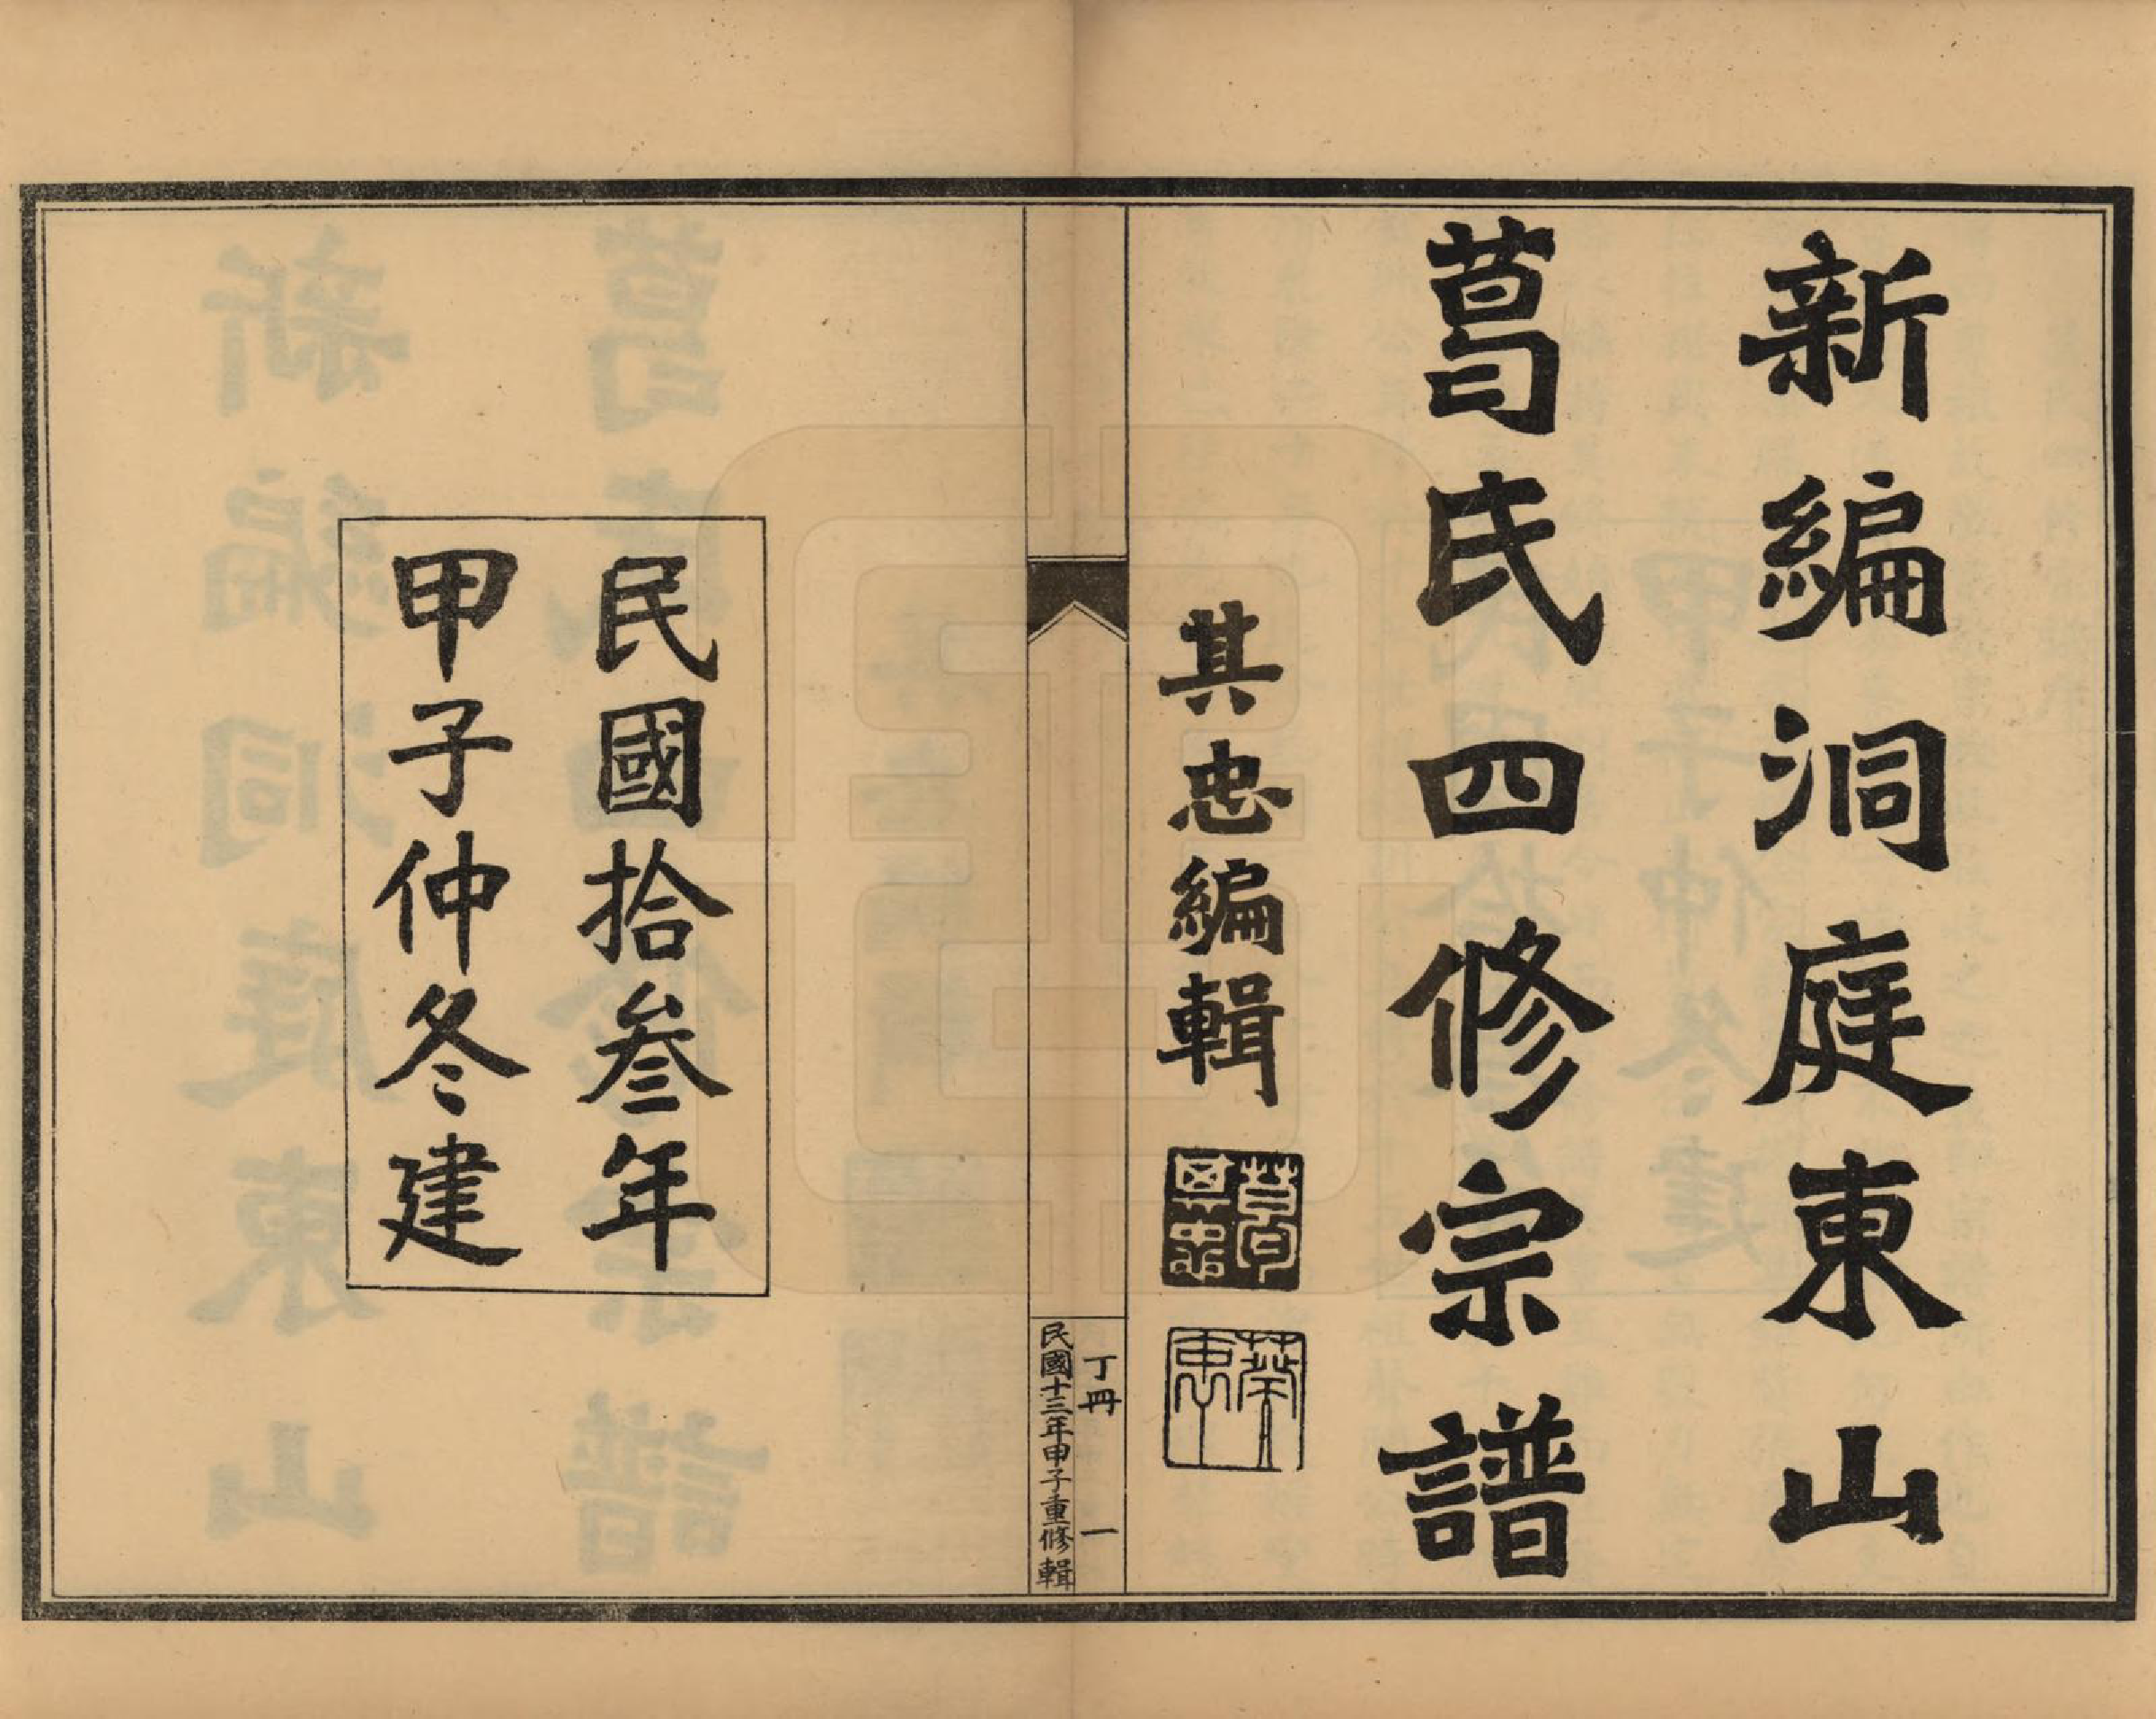 新編洞庭東山
葛氏四修宗譜
其忠編輯
丁冊
一
民國十三年甲子重修輯
民國拾叁年
甲子仲冬建